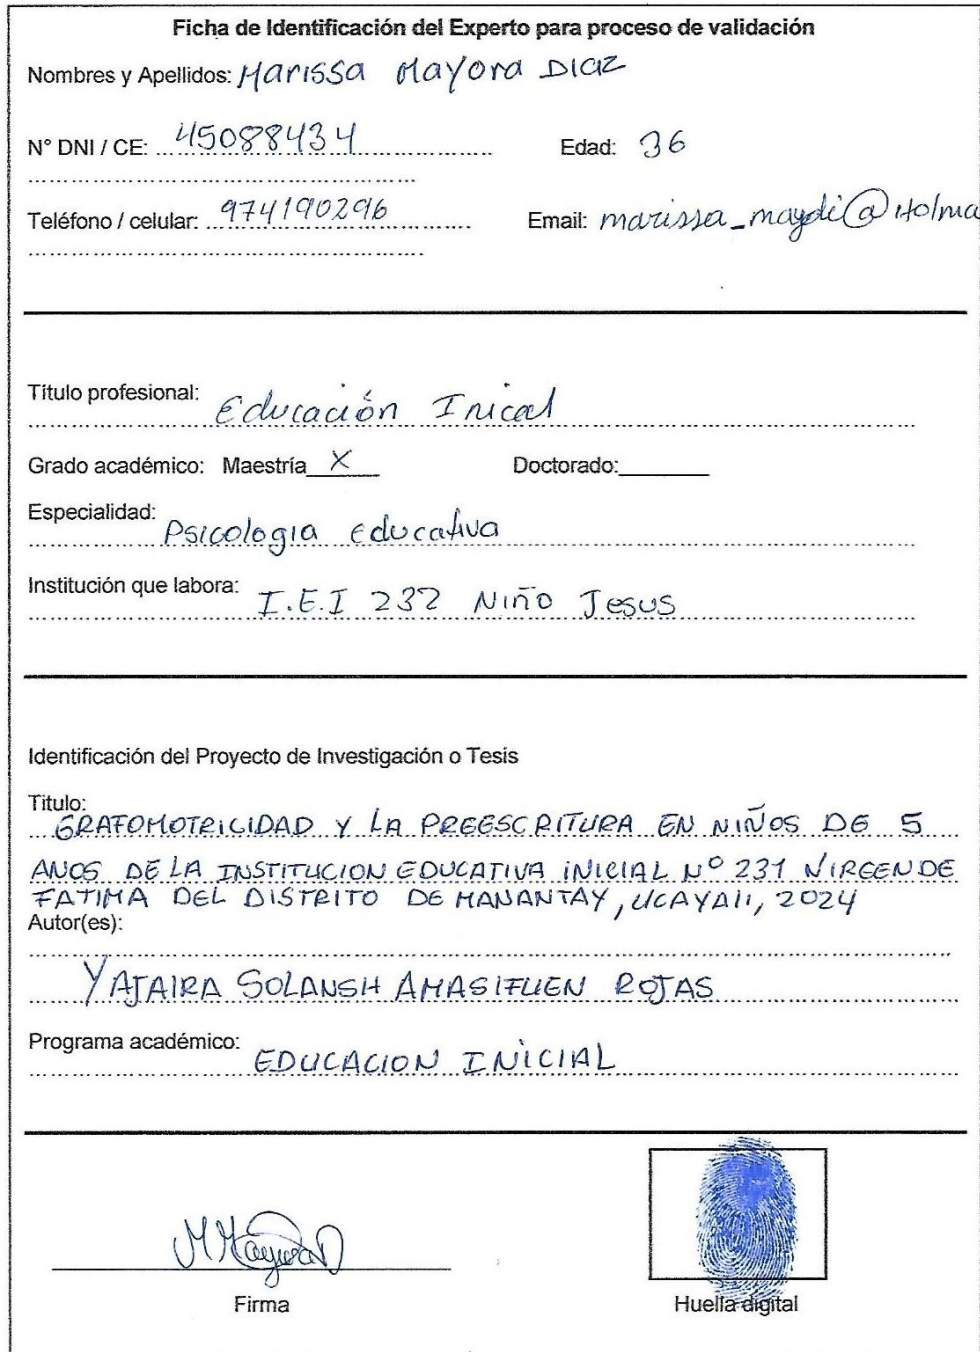 Ficha de Identificación del Experto para proceso de validación
Nombres y Apellidos: Marissa Mayora Diaz
N° DNI / CE: 45088434 Edad: 36
Teléfono / celular: 974190296 Email: marissa_maydi@Holma
Título profesional: Educación Inical
Grado académico: Maestría X Doctorado:
Especialidad: Psicologia educativa
Institución que labora: I.E.I 232 Niño Jesus
Identificación del Proyecto de Investigación o Tesis
Titulo:
GRAFOMOTRICIDAD Y LA PREESCRITURA EN NIÑOS DE 5
ANOS DE LA INSTITUCION EDUCATIVA INICIAL N° 231 VIRGEN DE
FATIMA DEL DISTRITO DE MANANTAY, UCAYALI, 2024
Autor(es):
YAJAIRA SOLANSH AMASIFUEN ROJAS
Programa académico: EDUCACION INICIAL
Firma Huella digital